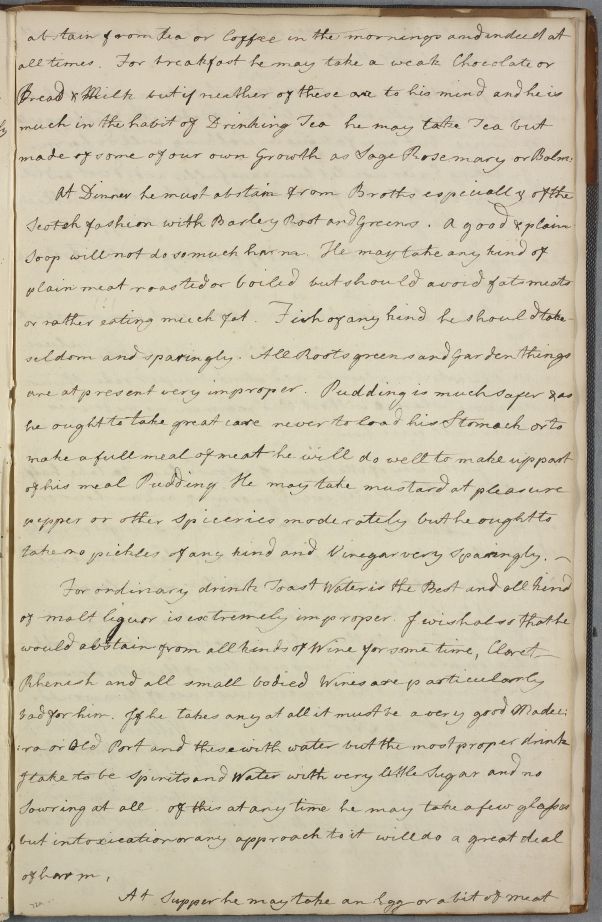 abstain from tea or Coffee in the mornings and indeed at
all times. For breakfast he may take a weak Chocolate or
Bread & Milk but if neather of these are to his mind and he is
much in the habit of Drinking Tea he may take Tea but
made of some of our own Growth as Sage Rosemary or Balm:
At Dinner he must abstain from Broths especially of the
Scotch fashion with Barley Root and Greens. A good & plain
Soop will not do so much harm. He may take any kind of
plain meat roasted or boiled but should avoid fat meats
or rather eating much fat. Fish of any kind he should take
seldom and sparingly. All Roots greens and Garden things
are at present very improper. Pudding is much safer & as
he ought to take great care never to load his Stomach or to
make a full meal of meat he will do well to make up part
of his meal Pudding. He may take mustard at pleasure
pepper or other Spiceries moderately but he ought to
take no pickles of any kind and Vinegar very Sparingly. ~
For ordinary drink Toast Water is the Best and all kind
of malt liquor is extremely improper. I wish also that he
would abstain from all kinds of Wine for some time, Claret
Rhenish and all small bodied Wines are particularly
bad for him. If he takes any at all it must be a very good Madei:
:ra or Old Port and these with water but the most proper drink
I take to be Spirits and Water with very little Sugar and no
Sowring at all. Of this at any time he may take a few glasses
but intoxication or any approach to it will do a great deal
of harm.
At Supper he may take an Egg or a bit of meat